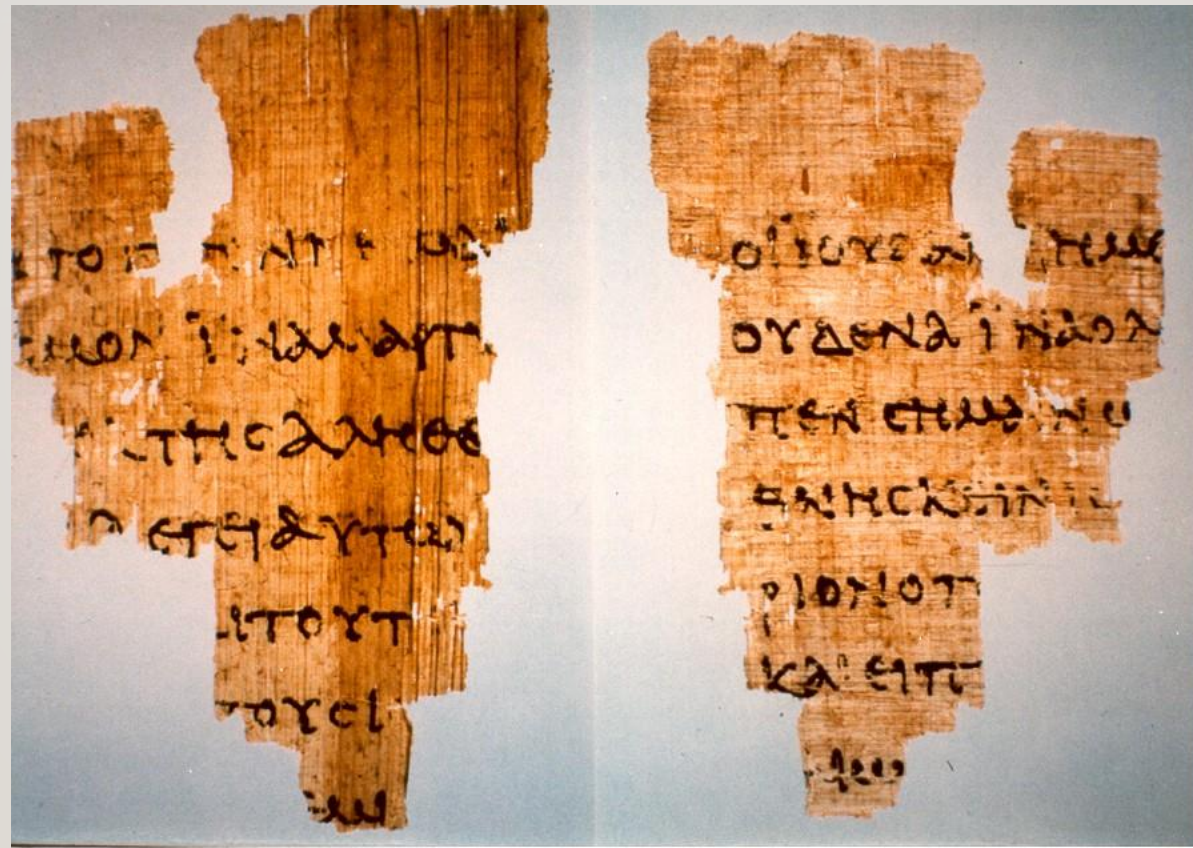 ΤΟ Γ
ϹΜΟΝ ΪΝΑ ΜΑΡΤ
ΤΗϹ ΑΛΗΘΕ
ΛΕΓΕΙ ΑΥΤΩ
ΑΙ ΤΟΥΤ
ΤΟΥϹ Ι
ΕΜΙ
ΟΙ ΙΟΥΔΑΙ ΗΜΕ
ΟΥΔΕΝΑ ΪΝΑ Ο Λ
ΠΕΝ ϹΗΜΑΙΝΩ
ΘΝΗϹΚΕΙΝ
ΡΙΟΝ Ο Π
ΚΑΙ ΕΙΠ